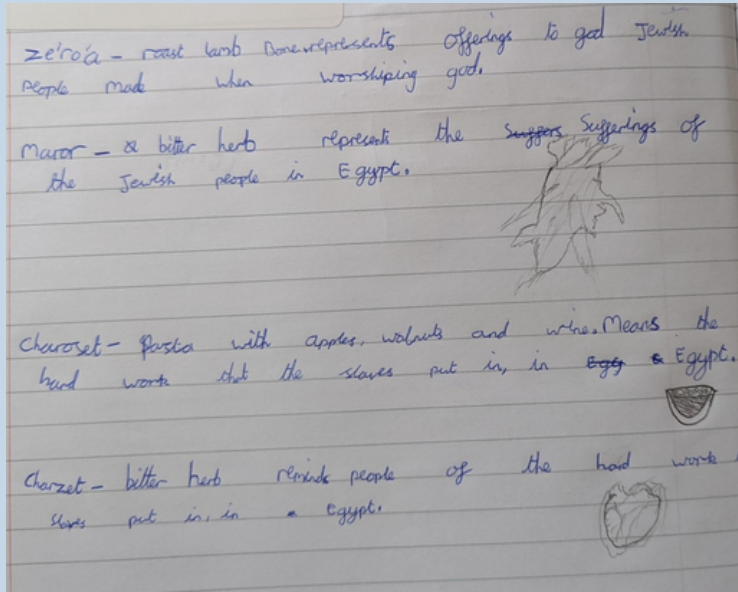 ze'ro'a - roast lamb Bone represents offerings to god Jewish
people made when worshiping god.
Maror - a bitter herb represents the Suffers Sufferings of
the Jewish people in Egypt.
Charoset - Pasta with apples, walnuts and wine. Means the
hard work that the slaves put in, in Egy Egypt.
Charzet - bitter herb reminds people of the hard work
slaves put in, in Egypt.